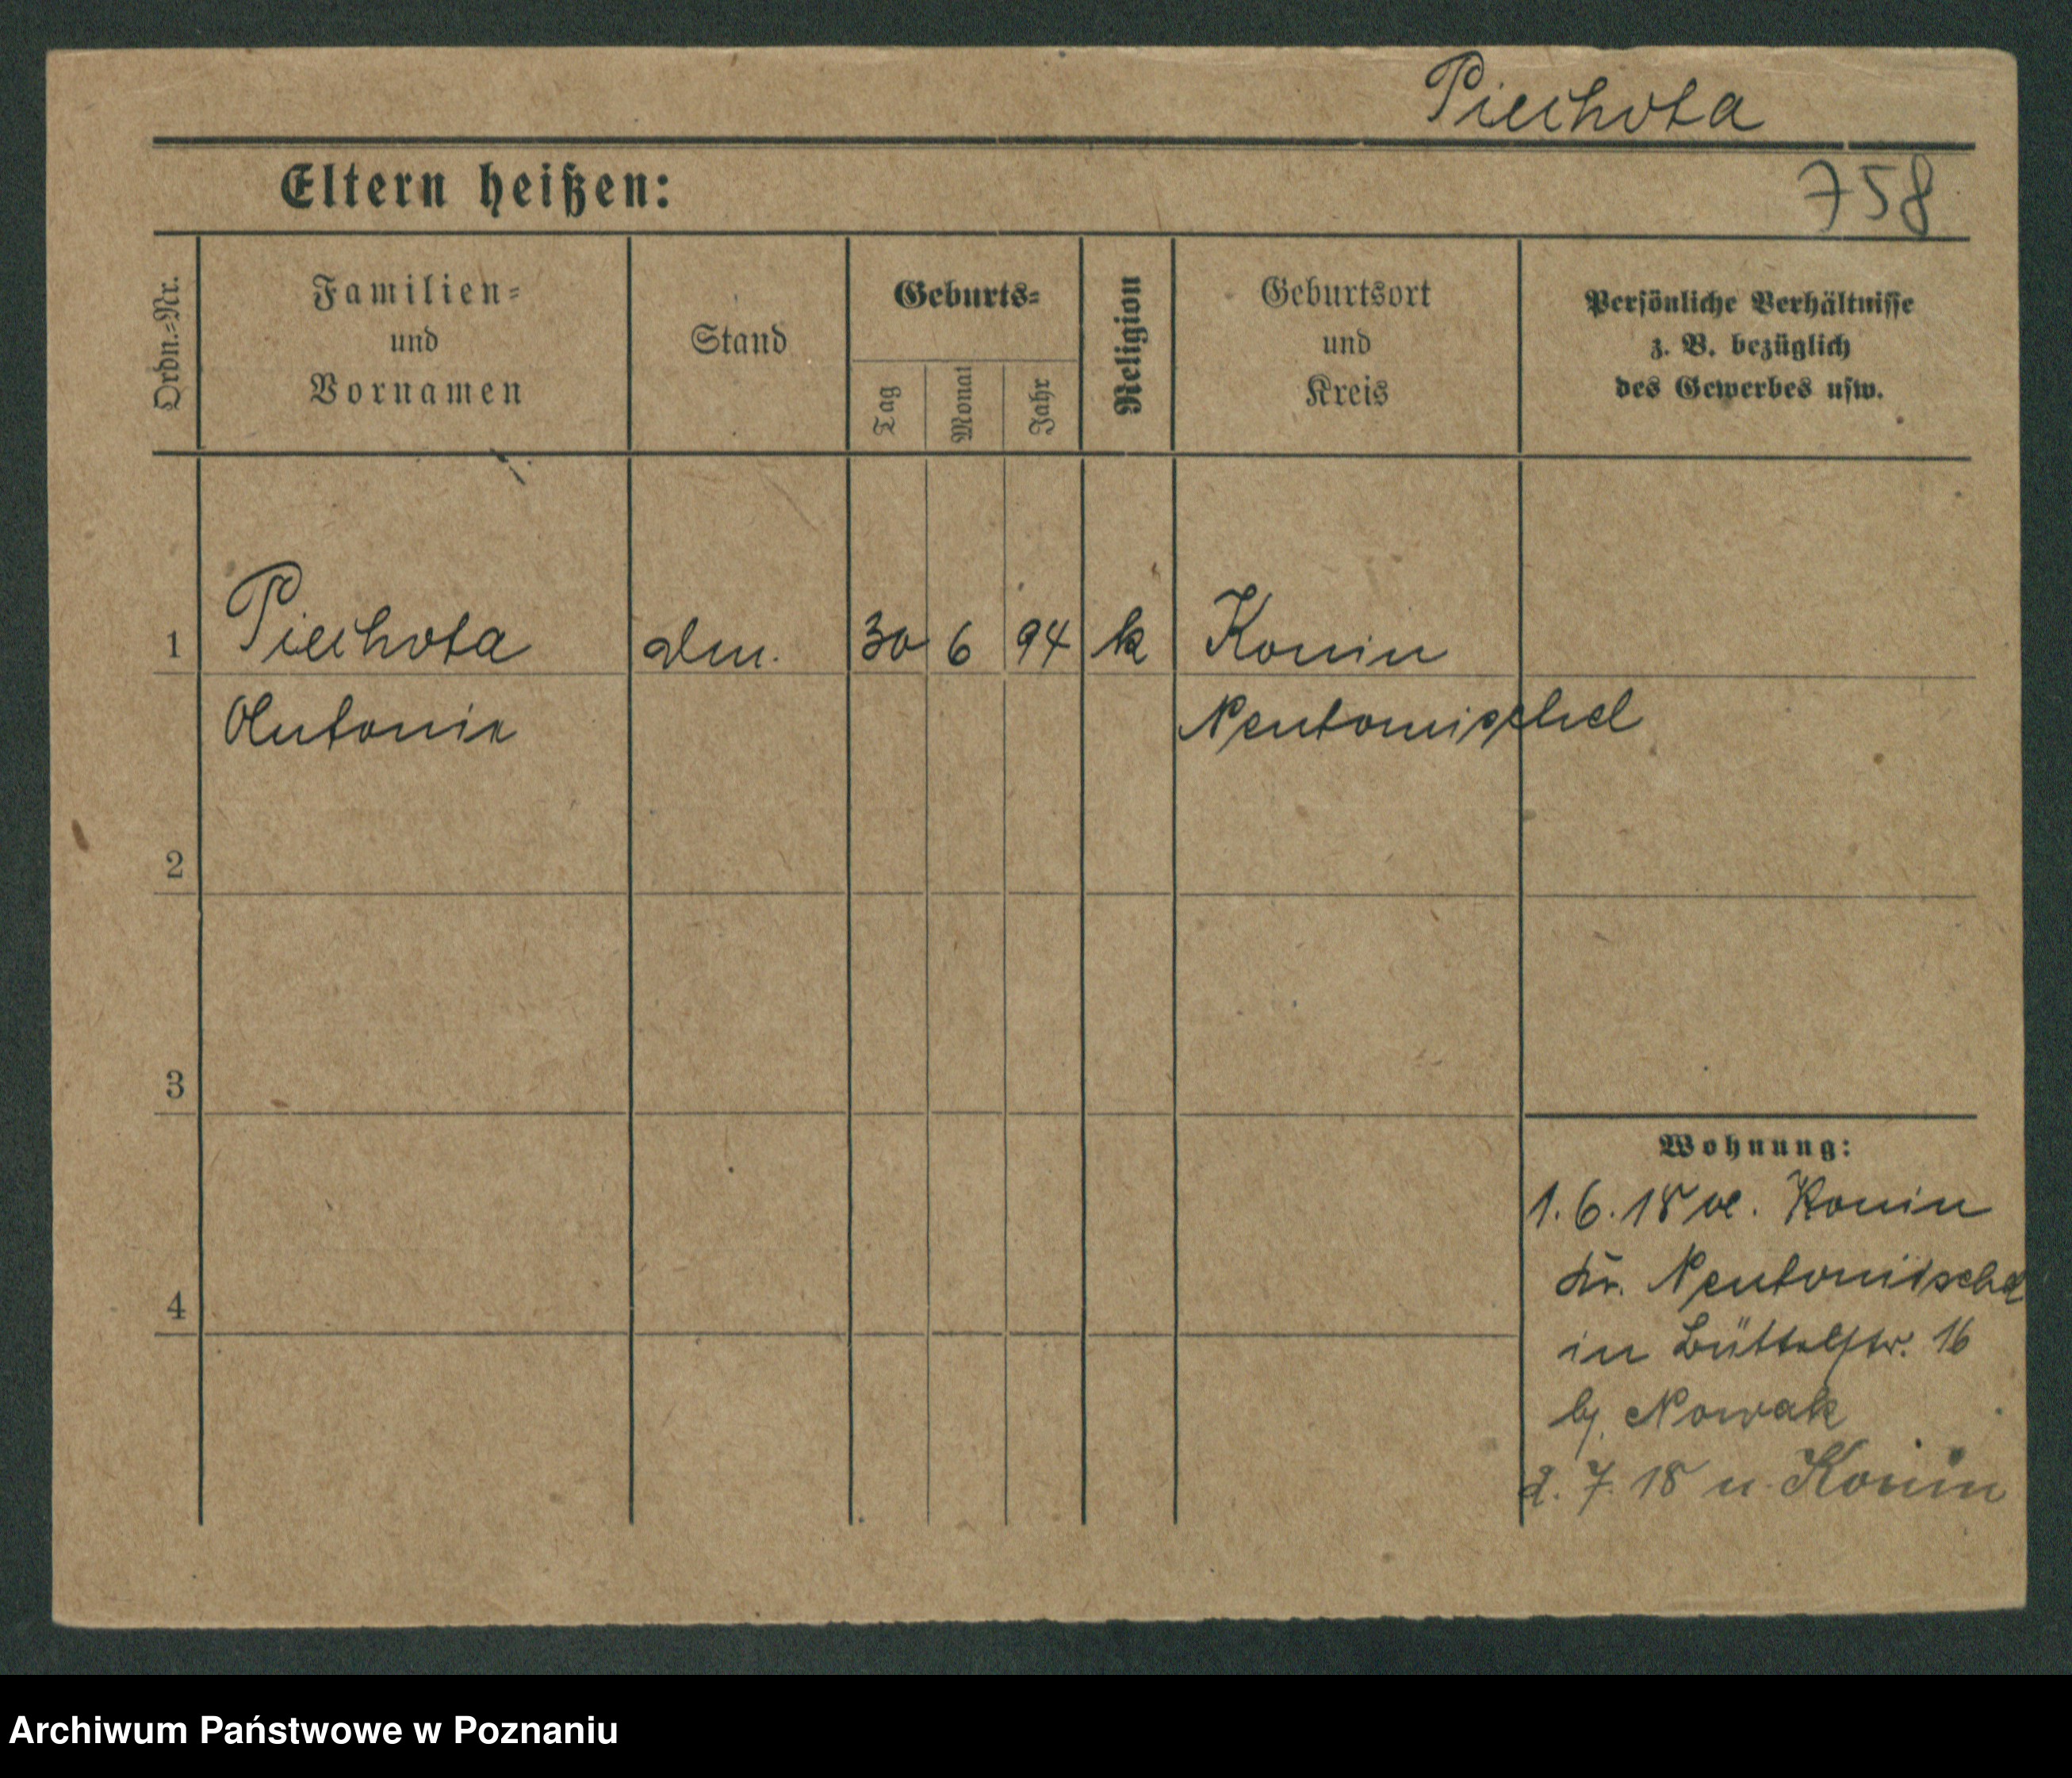 Piechota
Eltern heißen:
758
Ordn.=Nr.
Familien=
und
Vornamen
Stand
Geburts=
Tag
Monat
Jahr
Religion
Geburtsort
und
Kreis
Persönliche Verhältnisse
z. B. bezüglich
des Gewerbes usw.
1 Piechota 30 6 94 k Konin
Antonie Neutomischel
2
3
4
Wohnung:
1. 6. 18 Konin
Kr. Neutomischel
in Büttelstr. 16
b. Nowak
2. 7. 18 n. Konin
Archiwum Państwowe w Poznaniu